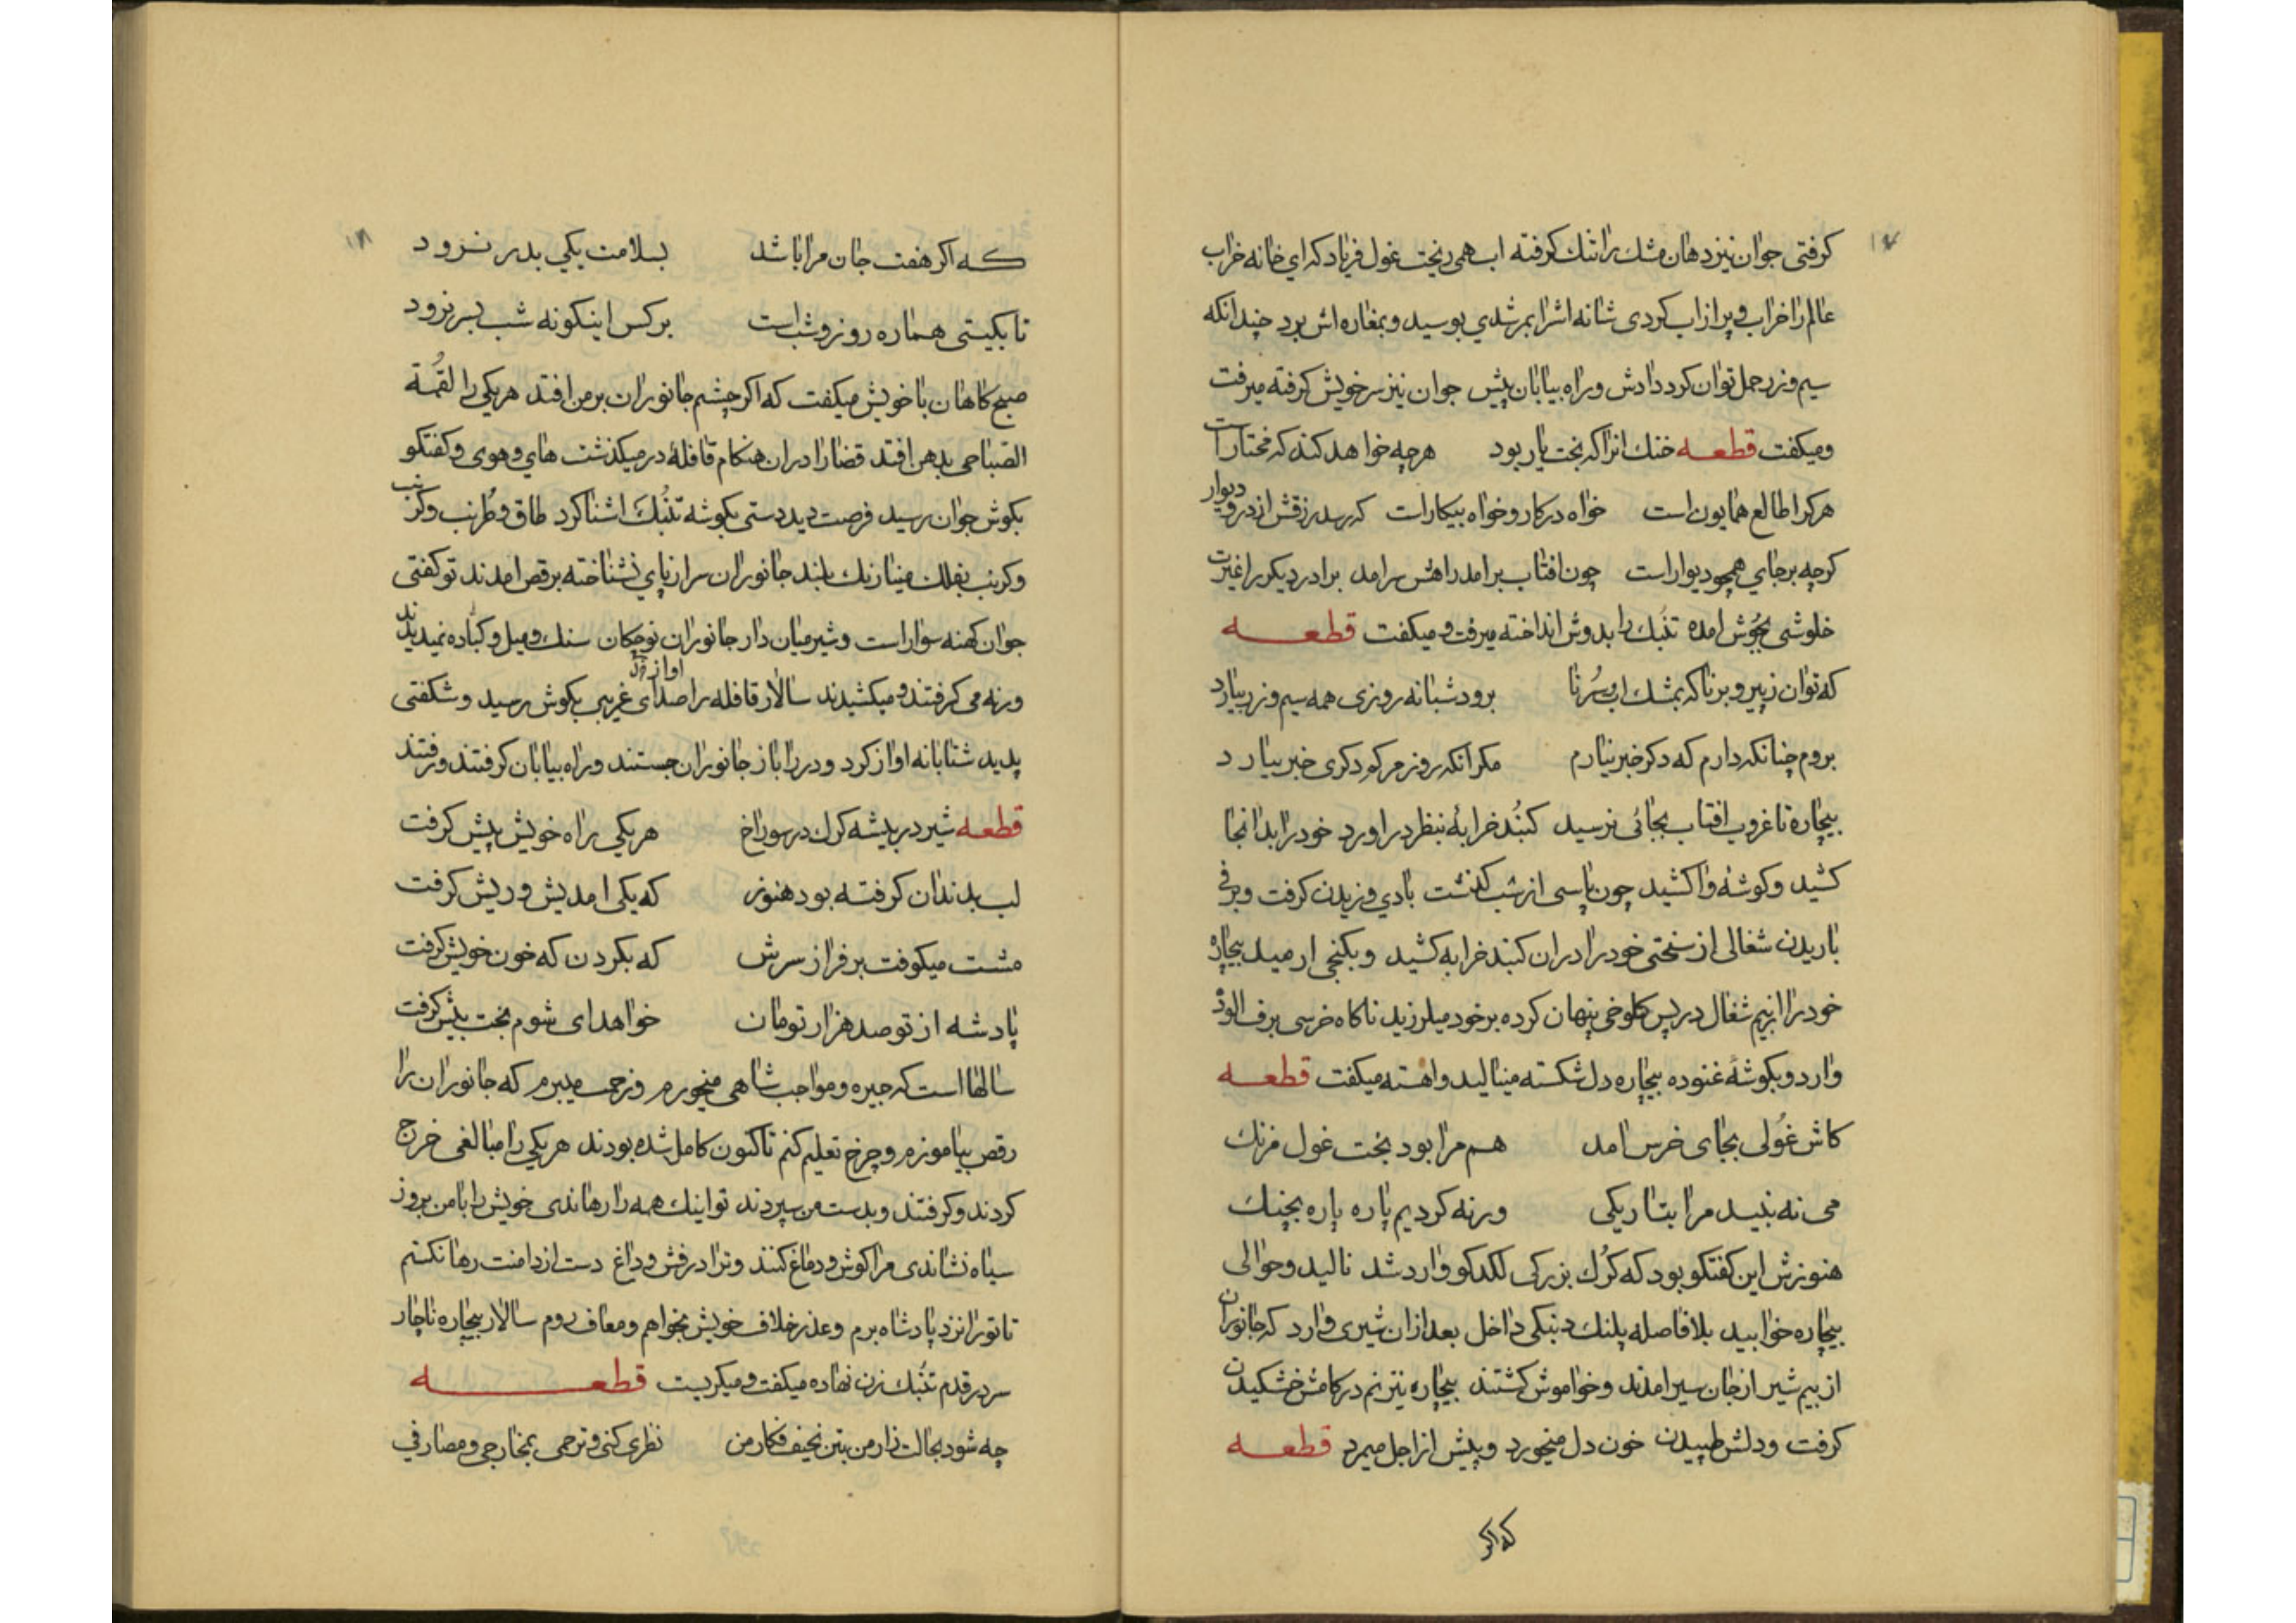 ۱۷
کرفتی جوان نیز دهان مشک را تنک کرفته اب همی ریخت غول فریاد که ای خانه خراب
عالم را خراب و پر از اب کردی شانه اش را بمرشدی بوسید و بمغاره اش برد چندانکه
سیم و زر حمل توان کرد دادش و راه بیابان پیش جوان نیز سر خویش کرفته میرفت
و میکفت قطعه خنک انرا که بخت یار بود هرچه خواهد کند که مختار است
هرکرا طالع همایون است خواه در کار و خواه بیکار است که رسد رزقش از در و دیوار
کرچه برجای همچو دیوار است چون افتاب برامد راهش سرامد برادر دیکر را غیرت
خلوشی بجوش امده تنبک را بدوش انداخته میرفت و میکفت قطعه
که توان ز پیر و برنا که بمشک اب و سرنا برود شبانه روزی همه سیم و زر بیارد
بروم چنانکه دارم که دکر خبر نیارم مکر انکه روز مرکم دکری خبر بیارد
بیچاره تا غروب افتاب بجائی نرسید کنبد خرابهٔ بنظر دراورد خود را بدانجا
کشید و کوشهٔ واکشید چون پاسی از شب کذشت بادی وزیدن کرفت و برفی
باریدن شغالی از سختی خود را در ان کنبد خرابه کشید و بکنجی ارمید بیچاره
خود را از بیم شغال در پس کلوخی پنهان کرده بر خود میلرزید ناکاه خرسی برف الود
وارد و بکوشهٔ غنوده بیچاره دل شکسته مینالید و اهسته میکفت قطعه
کاش غولی بجای خرس امد هم مرا بود بخت غول فرنک
می نه بیند مرا بتاریکی ورنه کردیم پاره پاره بچنک
هنوزش این کفتکو بود که کرک بزرکی لکدکو وارد شد نالید و حوالی
بیچاره خوابید بلافاصله پلنک دبنکی داخل بعد از ان شیری وارد که جانوران
از بیم شیر از جان سیر امدند و خواموش کشتند بیچاره نیز نم در کامش خشکیدن
کرفت و دلش طپیدن خون دل میخورد و پیش از اجل میمرد قطعه
که اکر
۱۸
که اکر هفت جان مرا باشد بسلامت یکی بدر نرود
تا بکیتی هماره روز و شب است بر کس اینکونه شب بسر نرود
صبح کاهان با خویش میکفت که اکر چشم جانوران بر من افتد هر یکی را لقمة
الصباحی بدهن افتد قضا را در ان هنکام قافلهٔ در میکذشت های و هوی و کفتکو
بکوش جوان رسید فرصت دید دستی بکوشه تنبک اشنا کرد طاق و طرنب و کرنب
و کرنب بفلک مینا رنک بلند جانوران سر از پای نشناخته برقص امدند تو کفتی
جوان کهنه سوار است و شیر میان دار جانوران نوچکان سنک و میل و کباده نمیدیدند
ورنه می کرفتند و میکشیدند سالار قافله را صدای غریبی بکوش رسید و شکفتی
پدید شتابانه اواز کرد و در را باز جانوران جستند و راه بیابان کرفتند و رفتند
قطعه شیر در بیشه کرک در سوراخ هر یکی راه خویش پیش کرفت
لب بدندان کرفته بود هنوز که یکی امدیش و ریش کرفت
مشت میکوفت بر فراز سرش که بکردن که خون خویش کرفت
پادشه از تو صد هزار تومان خواهد ای شوم بخت بیش کرفت
سالها است که جیره و مواجب شاهی میخورم و زحمت میبرم که جانوران را
رقص بیاموزم و چرخ تعلیم کنم تا کنون کامل شده بودند هر یکی را مبالغی خرج
کردند و کرفتند و بدست من سپردند تو اینک همه را رهاندی خویش را با من بروز
سیاه نشاندی مرا کوش و دماغ کنند و ترا درفش و داغ دست از دامنت رها نکنم
تا تو را نزد پادشاه برم و عذر خلاف خویش بخواهم و معاف روم سالار بیچاره ناچار
سر در قدم تنبک زن نهاده میکفت و میکریست قطعه
چه شود بحالت زار من بتن نحیف فکار من نظری کنی و ترحمی بمخارجی و مصارفی